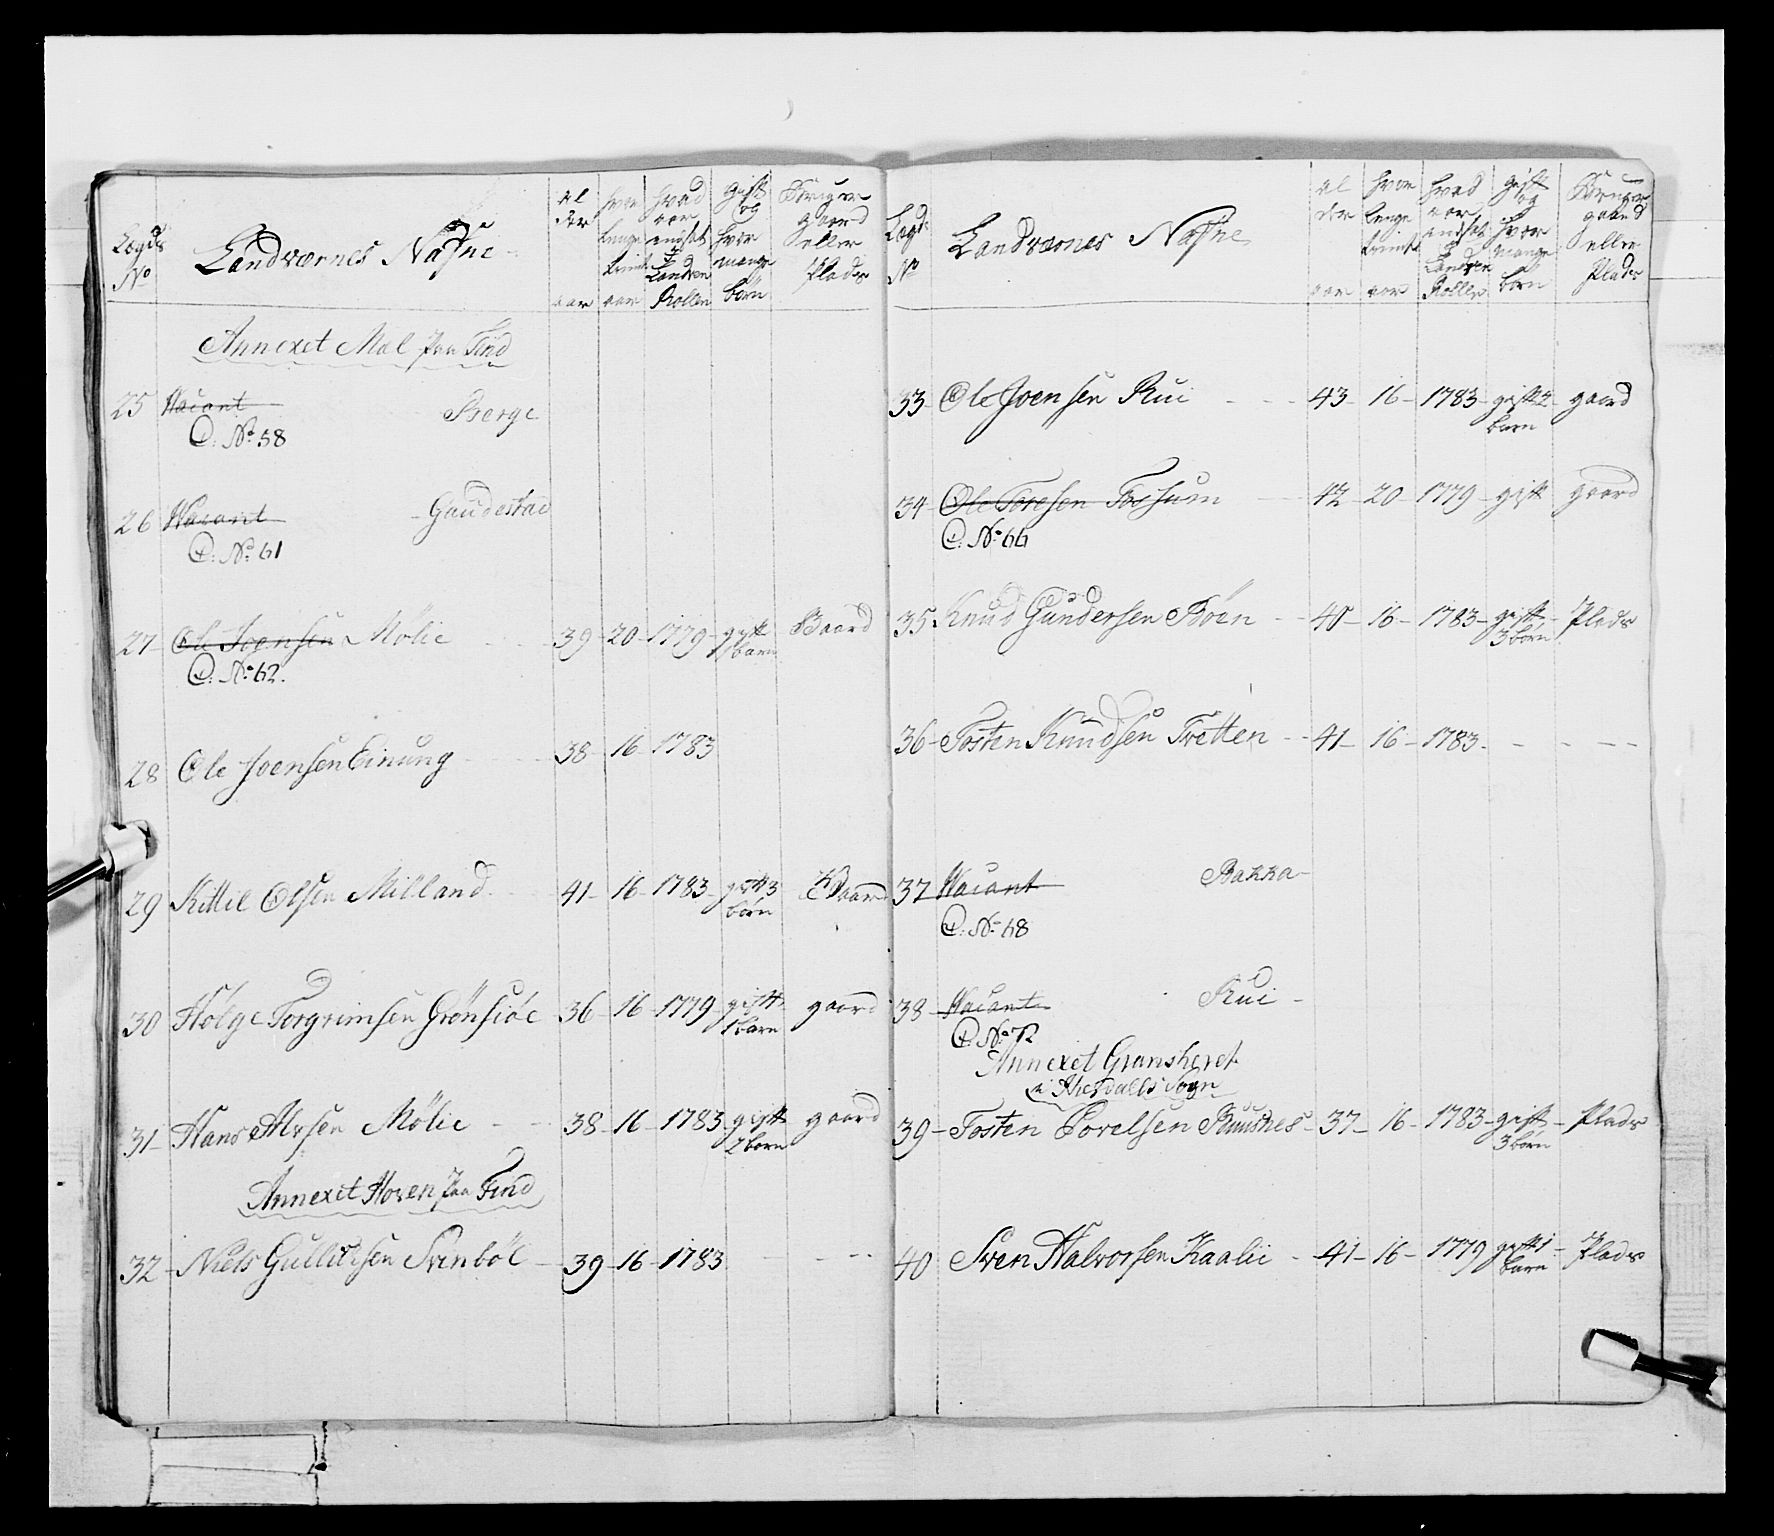 Lægds No Landværnes Nafne Alder aar hvor lenge tient aar hvad aar andsat i Landvæn Rollen gift og hvor mange børn Bruger gaard eller Plads
Annexet Mæl paa Tind
25 Vacant Berge
C: No 58
26 Vacant Gaudestad
C: No 61
27 Ole Joensen Mølie 39 20 1779 gift 1 barn Gaard
C: No 62.
28 Ole Joensen Einung 38 16 1783
29 Kittil Olsen Milland 41 16 1783 gift 3 børn Gaard
30 Holge Torgrimsen Grønsiøe 36 16 1779 gift 1 barn gaard
31 Hans Alvsen Mølie 38 16 1783 gift 2 børn gaard
Annexet Hoven paa Tind
32 Niels Gullicksen Svinbøl 39 16 1783
Lægds No Landværnes Nafne Alder aar hvor lenge tient aar hvad aar andsat i Landven Rolle gift og hvor mange børn Bruger gaard eller Plads
33 Ole Joensen Rui 43 16 1783 gift 2 barn gaard
34 Ole Toresen Fossum 42 20 1779 gift gaard
C: No 66
35 Knud Gundersen Bøen 40 16 1783 gift 3 børn Plads
36 Tosten Knudsen Tvetten 41 16 1783
37 Vacant Bakka
C: No 68
38 Vacant Rui
C: No 72
Annexet Gransheret
i Hierdalls Sogn
39 Tosten Povelsen Ruusnes 37 16 1783 gift 3 børn Plads
40 Sven Halvorsen Kaalie 41 16 1779 gift 1 barn Plads